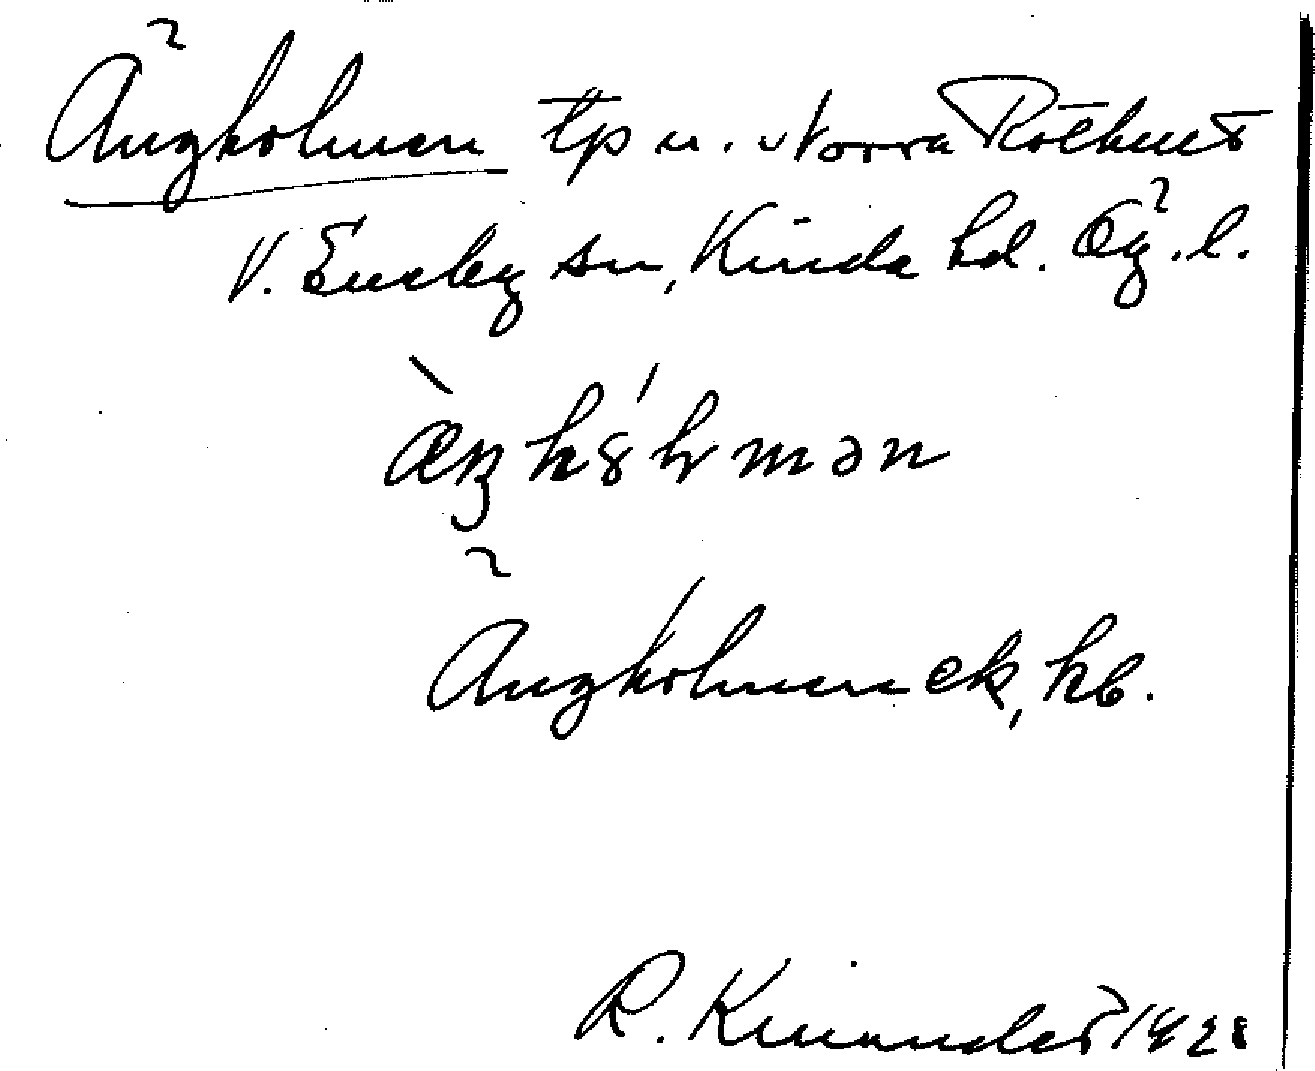 Ängholmen tp u. Norra Rothult
V. Eneby sn, Kinda hd. Ög. l.
æŋhólmən
Ängholmen ek, hb.
R. Kinander 1928